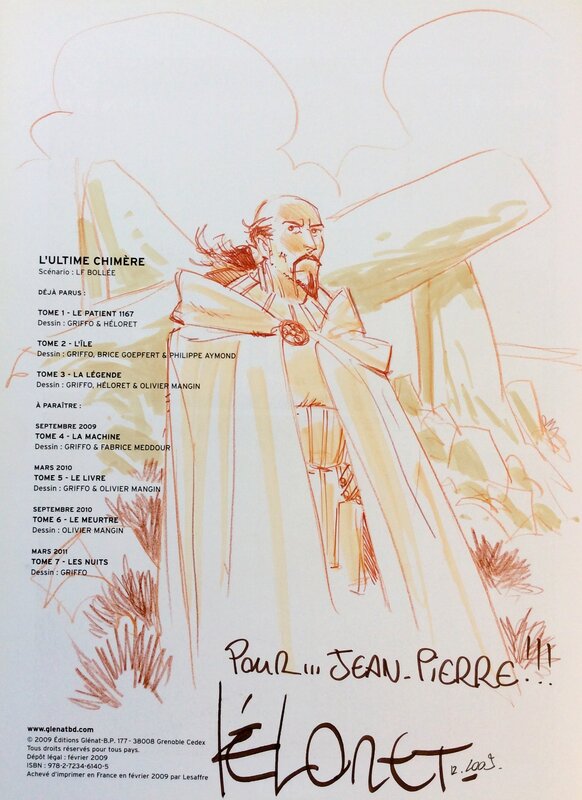 L'ULTIME CHIMÈRE
Scénario : LF BOLLÉE
DÉJÀ PARUS :
TOME 1 - LE PATIENT 1167
Dessin : GRIFFO & HÉLORET
TOME 2 - L'ÎLE
Dessin : GRIFFO, BRICE GOEPFERT & PHILIPPE AYMOND
TOME 3 - LA LÉGENDE
Dessin : GRIFFO, HÉLORET & OLIVIER MANGIN
À PARAÎTRE :
SEPTEMBRE 2009
TOME 4 - LA MACHINE
Dessin : GRIFFO & FABRICE MEDDOUR
MARS 2010
TOME 5 - LE LIVRE
Dessin : GRIFFO & OLIVIER MANGIN
SEPTEMBRE 2010
TOME 6 - LE MEURTRE
Dessin : OLIVIER MANGIN
MARS 2011
TOME 7 - LES NUITS
Dessin : GRIFFO
POUR... JEAN-PIERRE...!!!
HÉLORET 12.2009.
www.glenatbd.com
© 2009 Éditions Glénat-B.P. 177 - 38008 Grenoble Cedex
Tous droits réservés pour tous pays.
Dépôt légal : février 2009
ISBN : 978-2-7234-6140-5
Achevé d'imprimer en France en février 2009 par Lesaffre